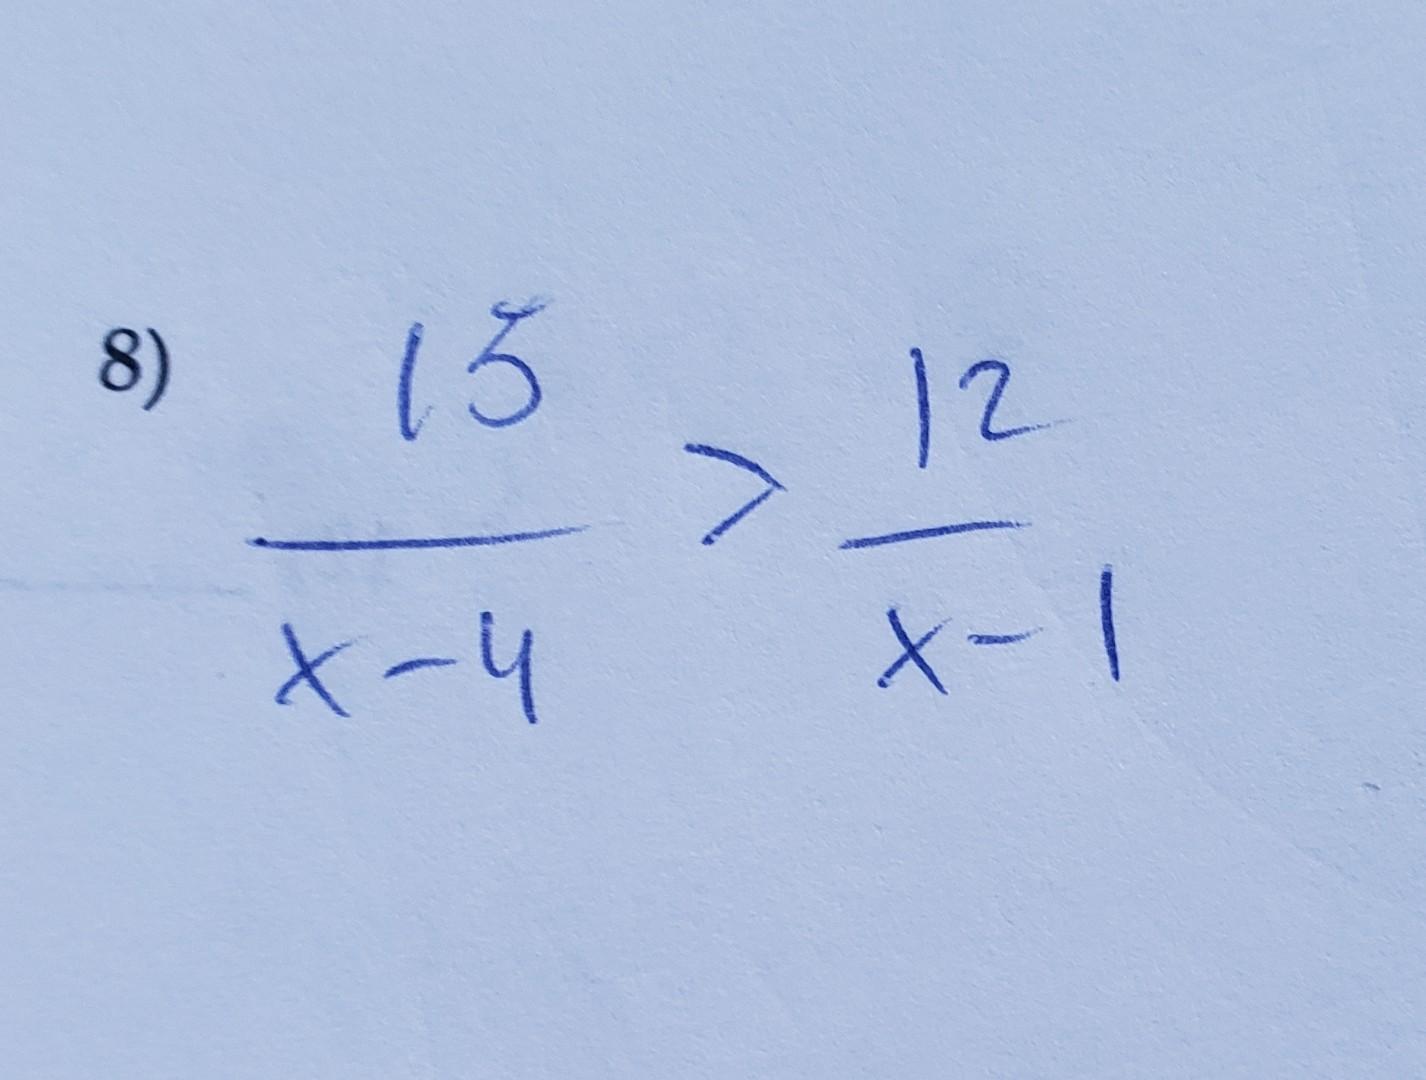 8) 15/(x-4) > 12/(x-1)